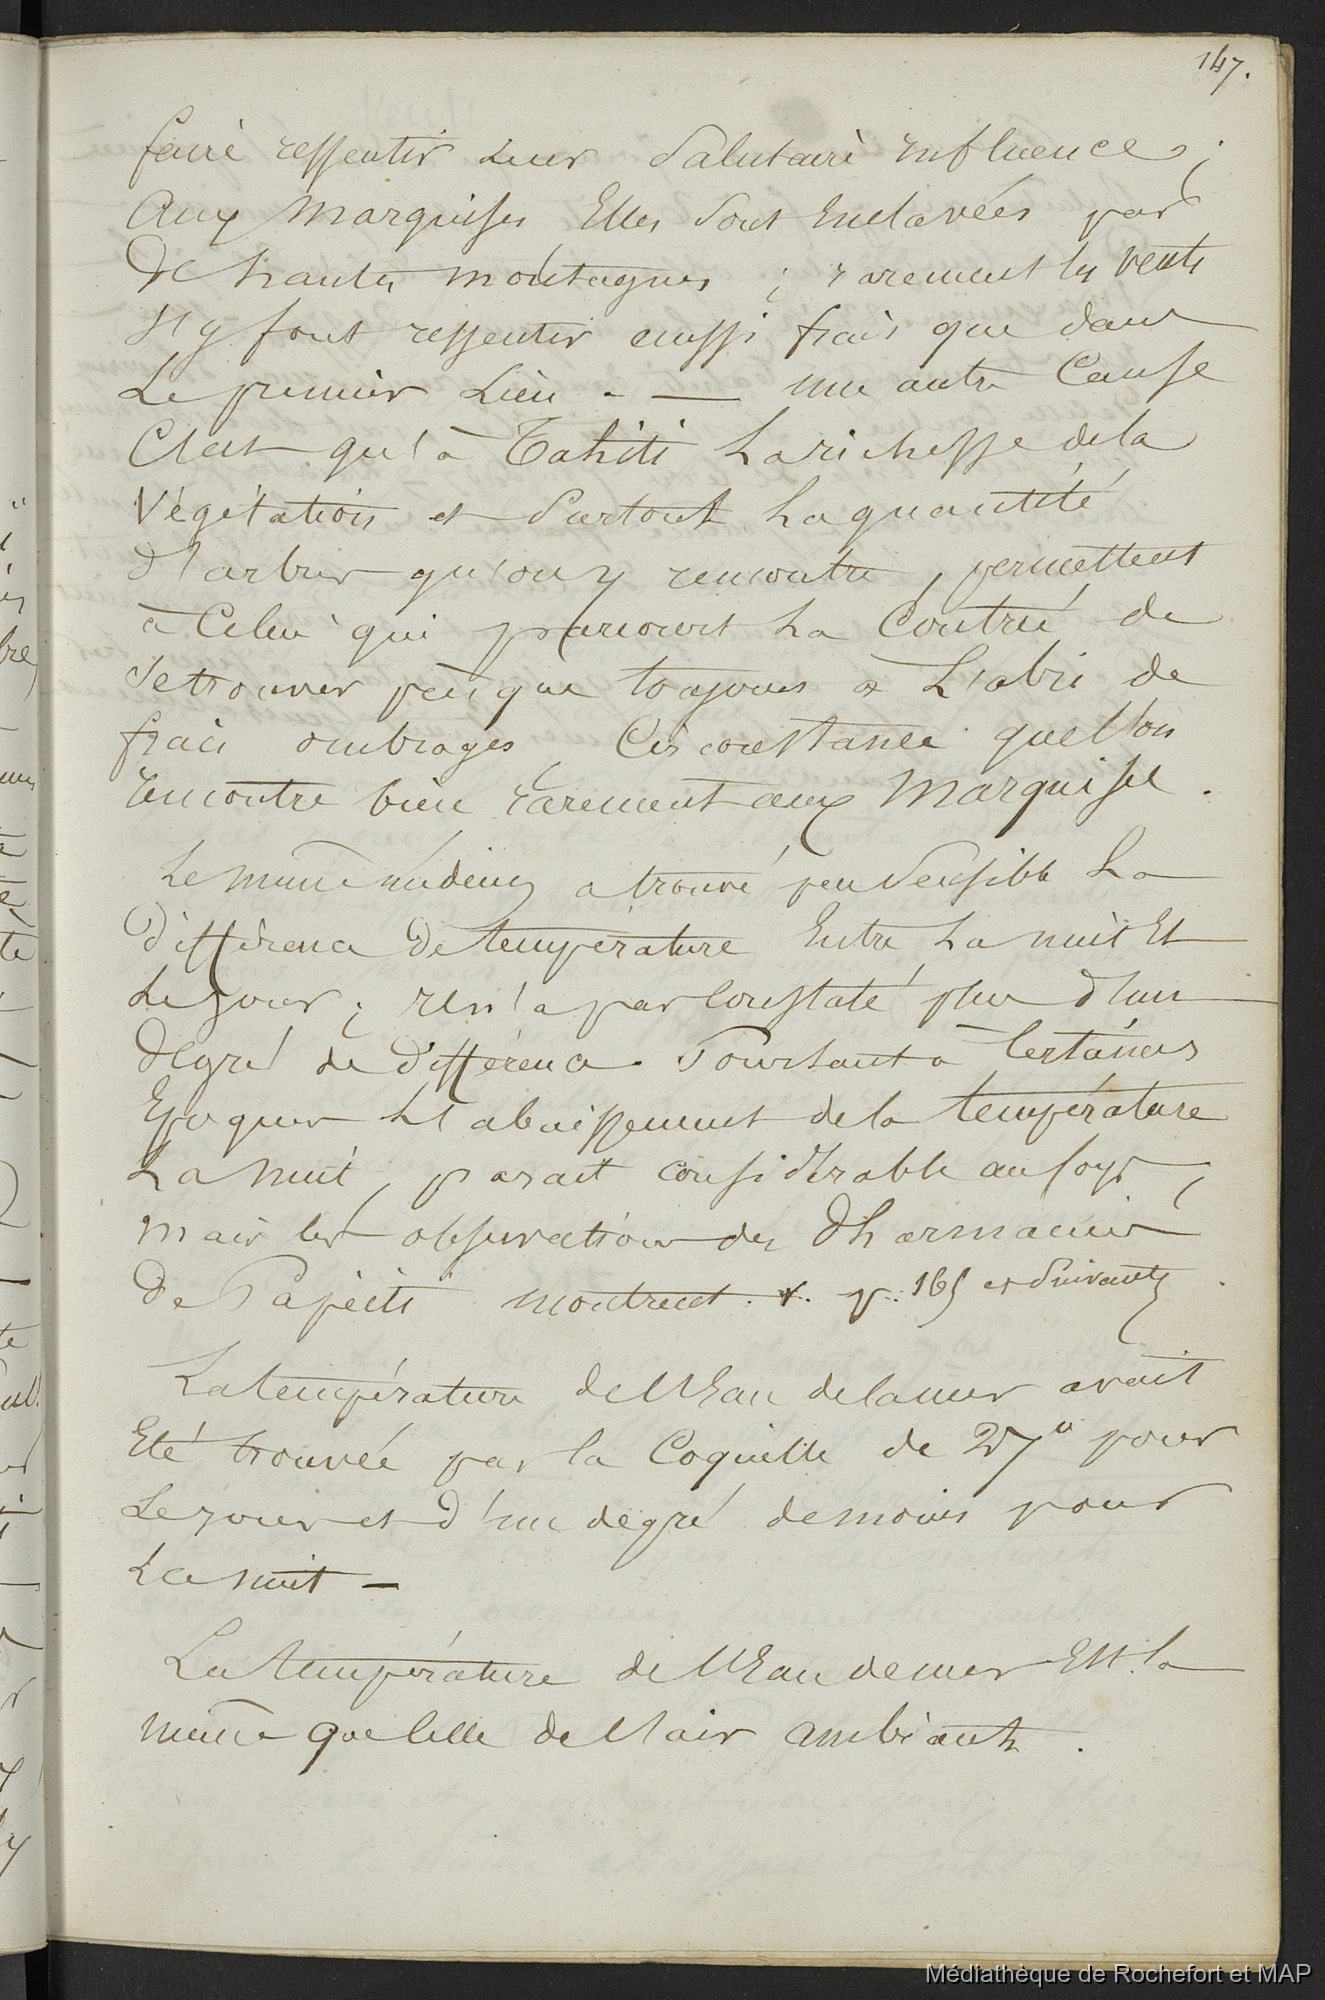 147.
faire ressentir leur salutaire influence ;
aux Marquises Elles sont Enclavées par
de hautes montagnes ; rarement les vents
s'y font ressentir aussi frais que dans
le premier lieu - — une autre Cause
C'est qu'à Tahiti la richesse de la
Végétation et surtout la quantité
d'arbres qu'on y rencontre, permettent
à Celui qui parcourt la Contrée de
se trouver presque toujours à l'abri de
frais ombrages, Circonstance que l'on
rencontre bien rarement aux Marquises.
Le même médecin a trouvé peu sensible la
différence de température Entre la nuit Et
le jour ; il n'a pas constaté plus d'un
degré de différence. Pourtant à Certaines
Epoques l'abaissement de la température
la nuit, parait considérable au corps,
mais les observations des pharmaciens
de Papeïti montrent. v. p. 165 et suivants.
La température de l'Eau de la mer avait
Eté trouvée par la Coquille de 27° pour
le jour et d'un degré de moins pour
la nuit —
La température de l'Eau de mer Est la
même que Celle de l'air ambiant.
Médiathèque de Rochefort et MAP